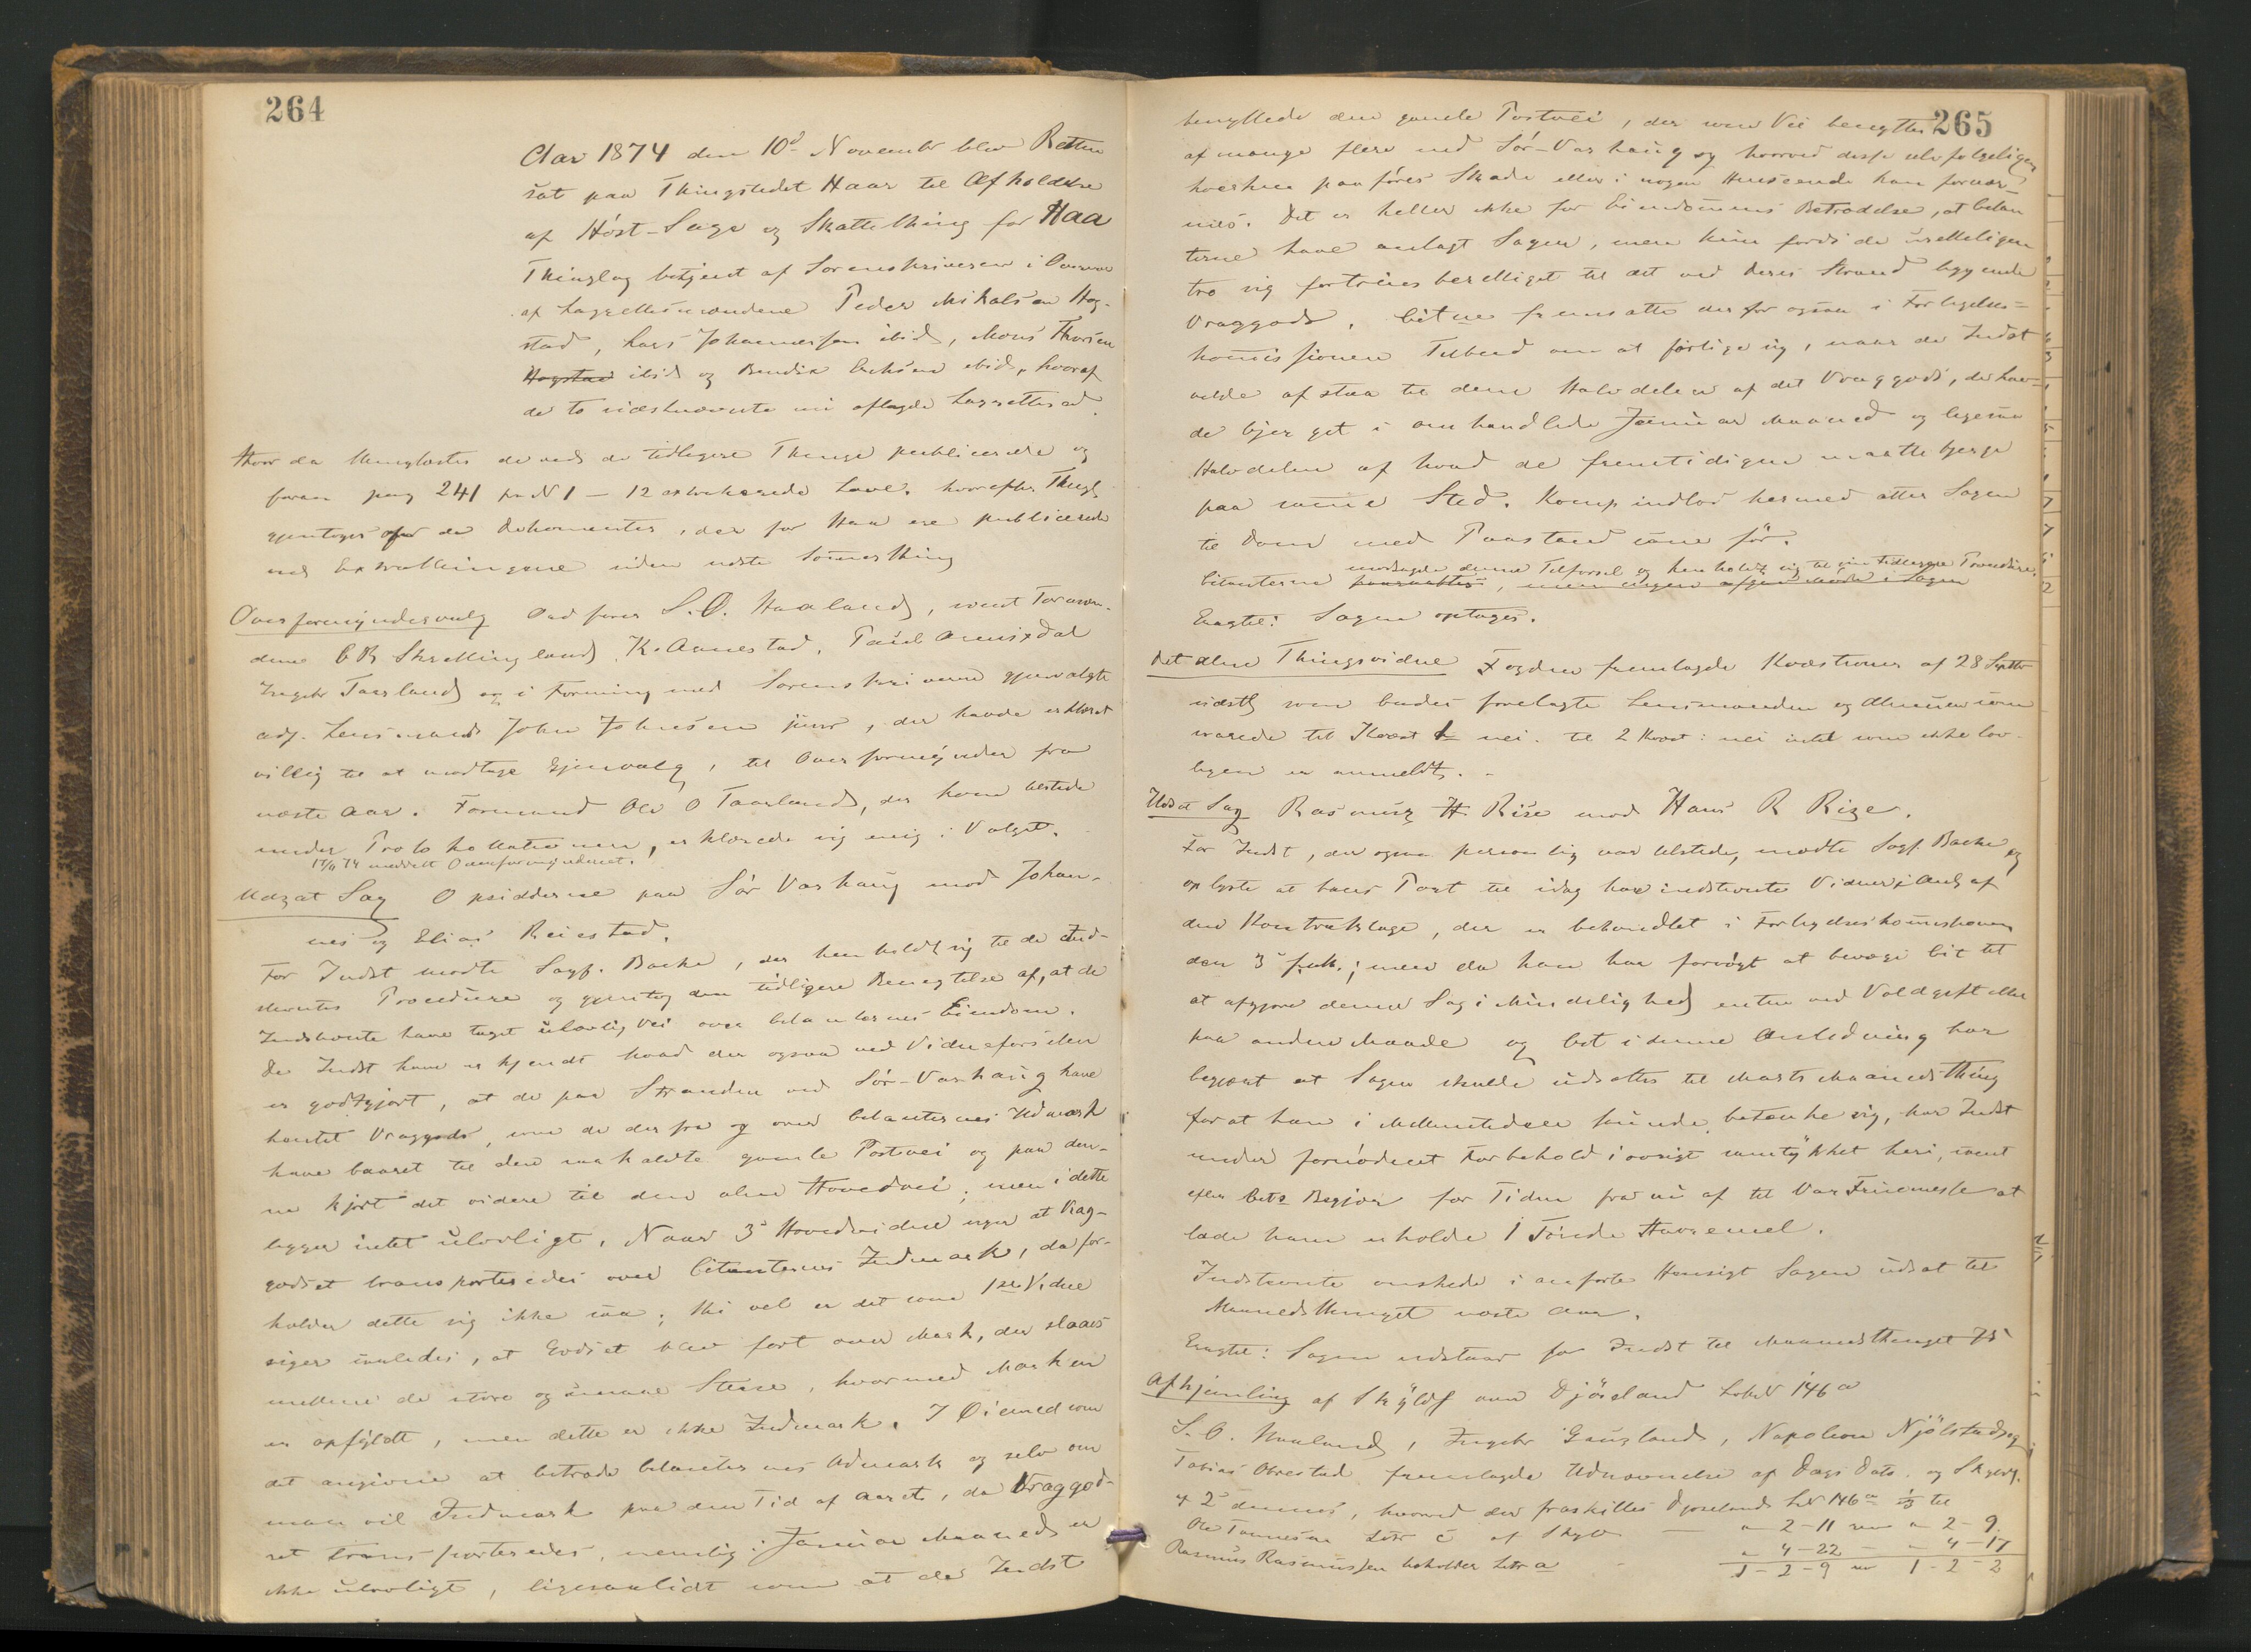 264
Aar 1874 den 10d Novembr blev Retten
sat paa Thingstedet Haar til Afholdelse
af Höst-Sage og Skattething for Haa
Thinglag betjent af Sorenskriveren i Overvær
af Laugrettesmændene Peder Mikalsen Hog-
stad, Lars Johannessen ibid, Mons Thorsen
Hogstad ibid og Bendix Eriksen ibid, hvoraf
de to sidstnævnte nu aflagde Laugretteseed.
Hvor da thinglæstes de ved de tidligere Thinge publicerede og
foran pag 241 fra N 1 - 12 extraherede Love. hvorefter Thingl.
gjentoges af de Dokumenter, der for Haa ere publicerede
ved Extrathingene siden sidste Sommerthing
Overformyndervalg Ordfører S. O. Haaland, samt Formæn-
dene O B Skretting K. Aanestad, Paul
Ingebr Taarland og i Forening med Sorenskriveren gjenvalgte
adj. Lensmand John Johnsen junr, der havde erklæret
villig til at modtage Gjenvalg, til Overformynder fra
næste Aar. Formand Ole O Taarland, der kom tilstede
under Protokollationen, erklærede sig enig i Valget.
17/11 74 meddelt Overformynderiet.
Udsat Sag Opsidderne paa Sör Varhaug mod Johan-
nes og Elias Reiestad.
For Indst mødte Sagf. Backe, der henholdt sig til de Ind-
stevntes Procedure og gjentog den tidligere Benegtelse af, at de
Indstevnte have taget ulovlig Vei over Citanternes Eiendom.
De Indst have erkjendt hvad der ogsaa ved Vidneførslen
er godtgjort, at de paa Stranden ved Sör-Varhaug have
hentet Vraggods, som de derfra og over Citanternes Udmark
have baaret til den saakaldte gamle Postvei og paa den-
ne kjört det videre til den alm Hovedvei; men i dette
ligger intet ulovligt. Naar 3d Hovedvidne siger at Vrag-
godset transporteredes over Citanternes Indmark, da for-
holder dette sig ikke saa; thi vel er det som 1ste Vidne
siger saaledes, at Godset blev fört over Mark, der slaaes
mellem de store og smaae Stene, hvormed Marken
er opfyldt, men dette er ikke Indmark. I Øiemed som
det angivne at betræde Citanternes Udmark og selv om
man vil Indmark paa den Tid af Aaret, da Vraggod-
set transporteredes, nemlig i Januar Maaned er
ikke ulovligt, ligesaalidt som at de Indst
265
benyttede den gamle Postvei, der som Vei benyttes
af mange flere ved Sör-Varhaug og hvorved disse selvfølgeligen
hverken paaføres Skade eller i nogen Henseende kan fornær-
mes. Det er heller ikke for Eiendommens Betrædelse, at Citan
terne have anlagt Sagen, men kun fordi de uretteligen
tro sig fortrinsberettiget til det ved deres Strand liggende
Vraggods. Citne fremsatte derfor ogsaa i Forligelses-
kommissionen Tilbud om at forlige sig, naar de Indst
vilde afstaa til dem Halvdelen af det Vraggods, de hav-
de bjerget i omhandlede Januar Maaned og ligesaa
Halvdelen af hvad de fremtidigen maatte bjerge
paa samme Sted. Komp indlod hermed atter Sagen
til Dom med Paastand som för.
modsagde denne Tilförsel og henholdt sig til sin tidligere Procedure.
Citanterne
Eragtet: Sagen optages.
Det alm Thingsvidne Fogden fremlagde Kvæstioner af 28 Septbr
sidstl som bades forelagte Lensmanden og Almuen som
svarede til Kvæst 1 nei. til 2 Kvæst: nei intet som ikke lov-
ligen er anmeldt. -
Udsat Sag Rasmus H. Rise mod Hans R Rize.
For Indst, der ogsaa personlig var tilstede, mødte Sagf. Backe og
oplyste at hans Part til idag har indstevnte Vidner i Anl af
den Kontraktsage, der er behandlet i Forligelseskommissionen
den 3d f. M.; men da han har forsögt at bevæge Cit til
at afgjøre denne Sag i Mindelighed enten ved Voldgift eller
paa anden Maade og Cit i denne Anledning har
begjært at Sagen skulde udsættes til Marts Maanedsthing
forat han i Mellemtiden kunde betænke sig, har Indst
under fornödent Forbehold i övrigt samtykket heri, samt
efter Cits Begjær for Tiden fra nu af til Var Fruemesse at
lade ham erholde 1 Tönde Havremel.
Indstevnte onskede i anførte Hensigt Sagen udsat til
Maanedsthinget næste Aar.
Eragtet: Sagen udstaar for Indst til Maanedsthinget 75
Afhjemling af Skyldf over Djösland Löbe N 146 a
S. O. Haaland, Ingebr Gausland, Napoleon Njölstad og
Tobias Obrestad fremlagde Udnævnelse af Dags Dato og Skyldf.
af 2d dennes, hvorved der fraskilles Djøseland LN 146a til
Ole Tønnesen Litr c af Skyld - 2-11 ny - 2-9.
- 4-22 - - 4-17
Rasmus Rasmussen beholder Litr a 1-2-9 ny 1-2-2